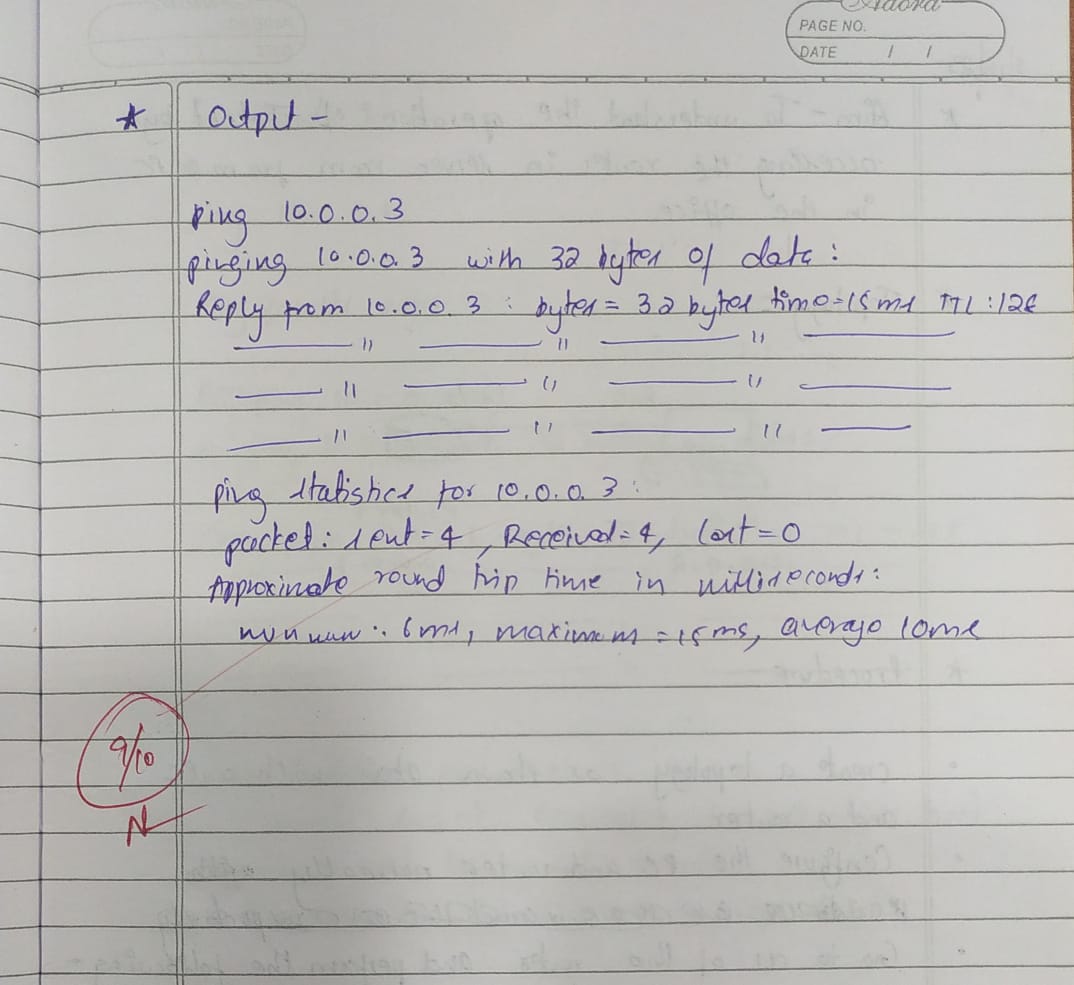 Adora
PAGE NO.
DATE / /
* Output -
ping 10.0.0.3
pinging 10.0.0.3 with 32 bytes of data:
Reply from 10.0.0.3: bytes = 32 bytes time=15ms TTL:126
— 〃 — 〃 — 〃 —
— 〃 — 〃 — 〃 —
— 〃 — 〃 — 〃 —
ping statistics for 10.0.0.3:
packet: sent = 4, Received = 4, lost = 0
Approximate round trip time in milliseconds:
6ms, maximum = 15ms, average 10ms
9/10
N